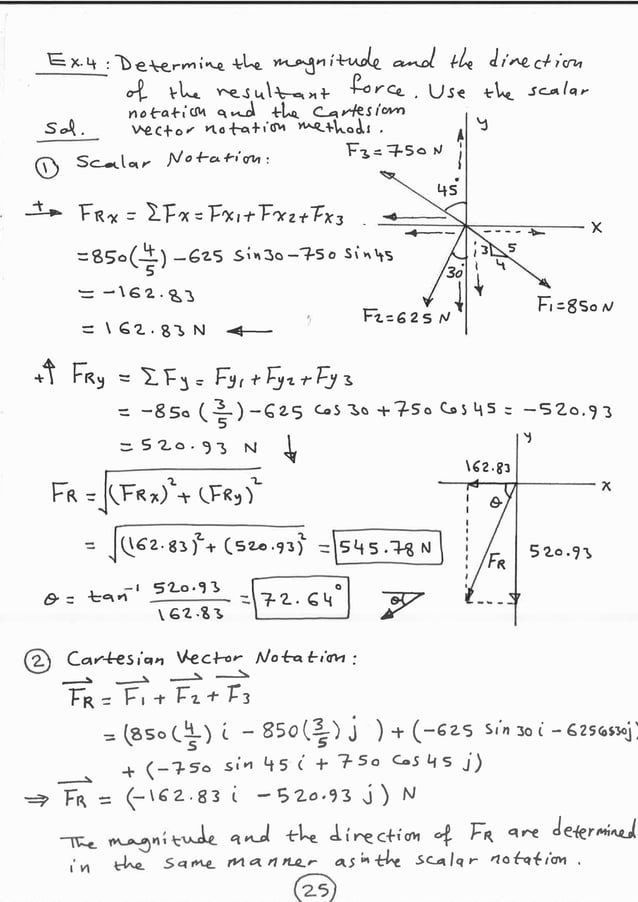 Ex.4 : Determine the magnitude and the direction
of the resultant force. Use the scalar
notation and the Cartesian
vector notation methods.
Sol.
① Scalar Notation:
y
F3=750 N
45°
x
3
5
4
30°
F1=850 N
F2=625 N
+→ FRx = ΣFx = Fx1+Fx2+Fx3
=850(4/5)-625 sin30-750 sin45
= -162.83
= 162.83 N ←
+↑ FRy = ΣFy = Fy1+Fy2+Fy3
= -850(3/5)-625 cos 30+750 cos 45 = -520.93
= 520.93 N ↓
FR = √(FRx)²+(FRy)²
= √(162.83)²+(520.93)² = 545.78 N
θ = tan⁻¹ 520.93/162.83 = 72.64°
θ
y
162.83
x
θ
FR
520.93
② Cartesian Vector Notation:
FR = F1 + F2 + F3
= (850(4/5) i - 850(3/5) j ) + (-625 sin 30 i - 625 cos 30 j)
+ (-750 sin 45 i + 750 cos 45 j)
⇒ FR = (-162.83 i - 520.93 j) N
The magnitude and the direction of FR are determined
in the same manner as in the scalar notation.
25